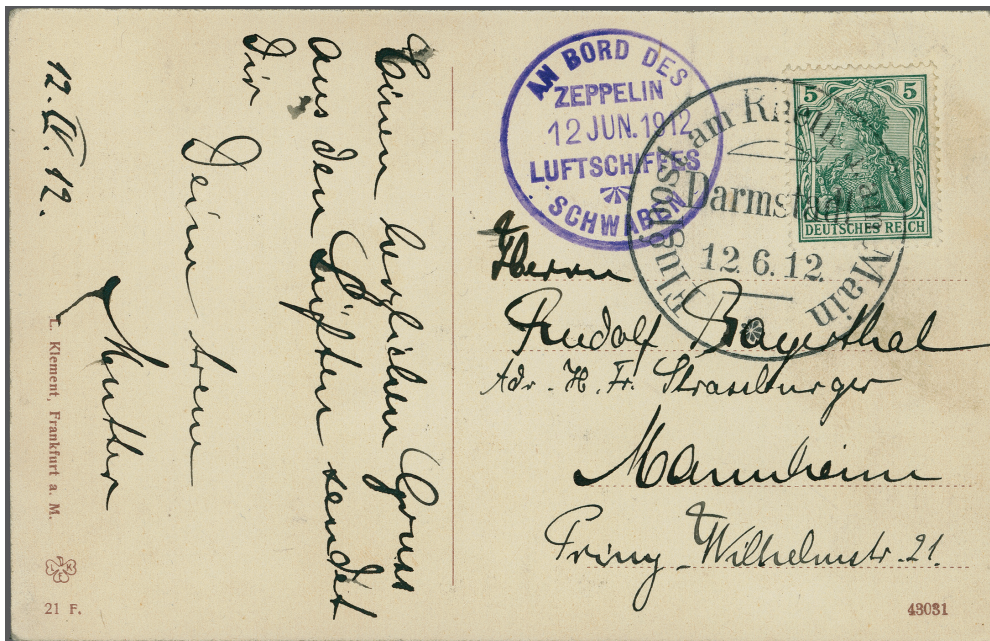 12.VI.12.
Einen herzlichen Gruss
aus den Lüften sendet
Dir
Deine treue
Mutter
L. Klement, Frankfurt a. M.
21 F.
AN BORD DES
ZEPPELIN
12 JUN. 1912
LUFTSCHIFFES
SCHWABEN
Flugpost am Rhein u. am Main
Darmstadt
12.6.12
5 5
DEUTSCHES REICH
Herrn
Rudolf Bayerthal
Adr. H. Fr. Strassburger
Mannheim
Prinz Wilhelmstr. 21.
43031